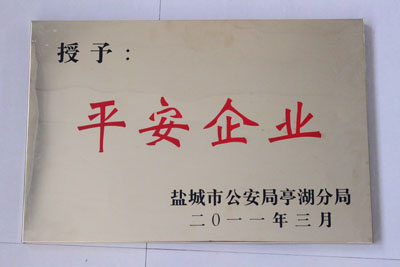 授予：
平安企业
盐城市公安局亭湖分局
二〇一一年三月